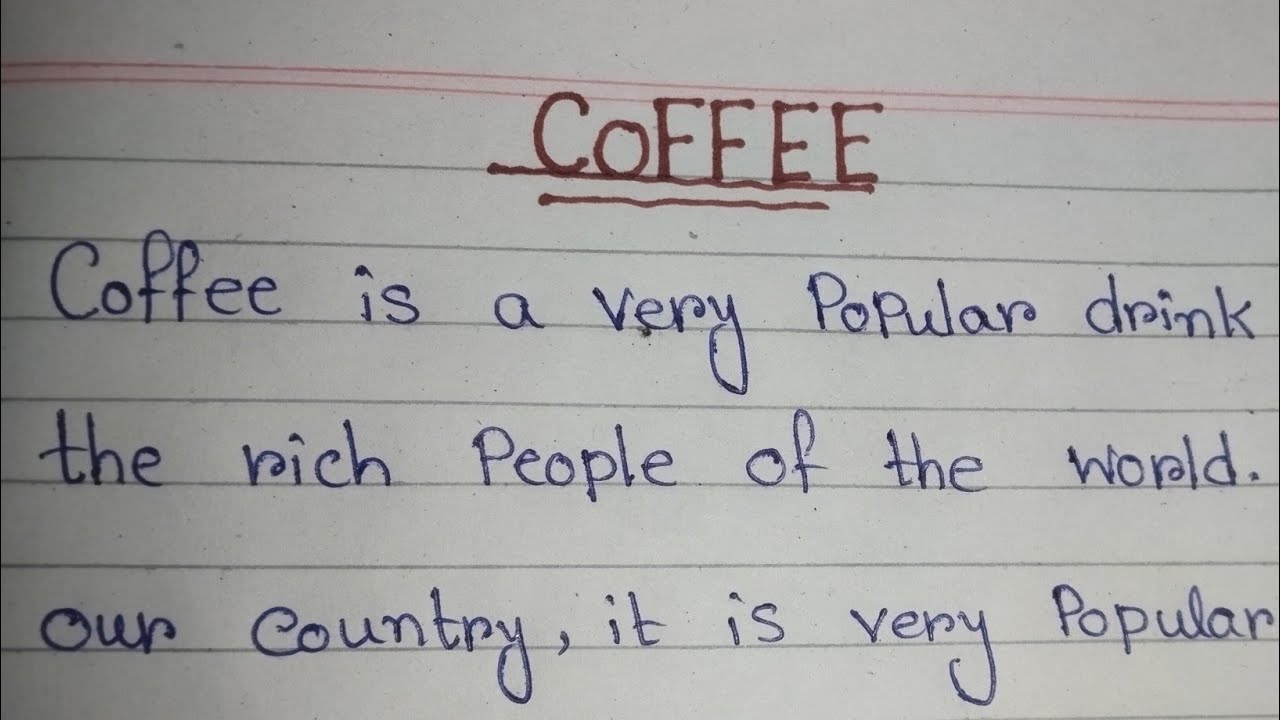 COFFEE
Coffee is a very Popular drink
the rich People of the world.
our country, it is very Popular